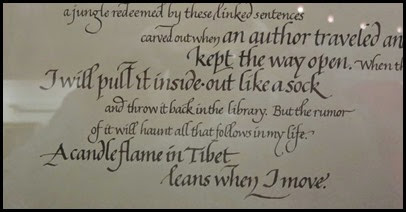 a jungle redeemed by these linked sentences
carved out when an author traveled an
kept the way open. When th
I will pull it inside-out like a sock
and throw it back in the library. But the rumor
of it will haunt all that follows in my life.
A candleflame in Tibet
leans when I move.